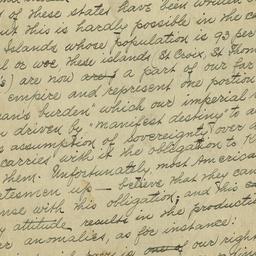 of these states have been written
ut this is hardly possible in the ca
Islands whose population is 93 per
l or woe these islands St Croix, St Thom
s) are now a part of our far
empire and represent one portion
an's burden" which our imperial
n driven by "manifest destiny" to a
s assumption of sovereignty over a
carries with it the obligation to
them. Unfortunately, most America
tesmen up — believe that they can
nse with this obligation; and this
y attitude results in the producti
r anomalies, as for instance:
of our right